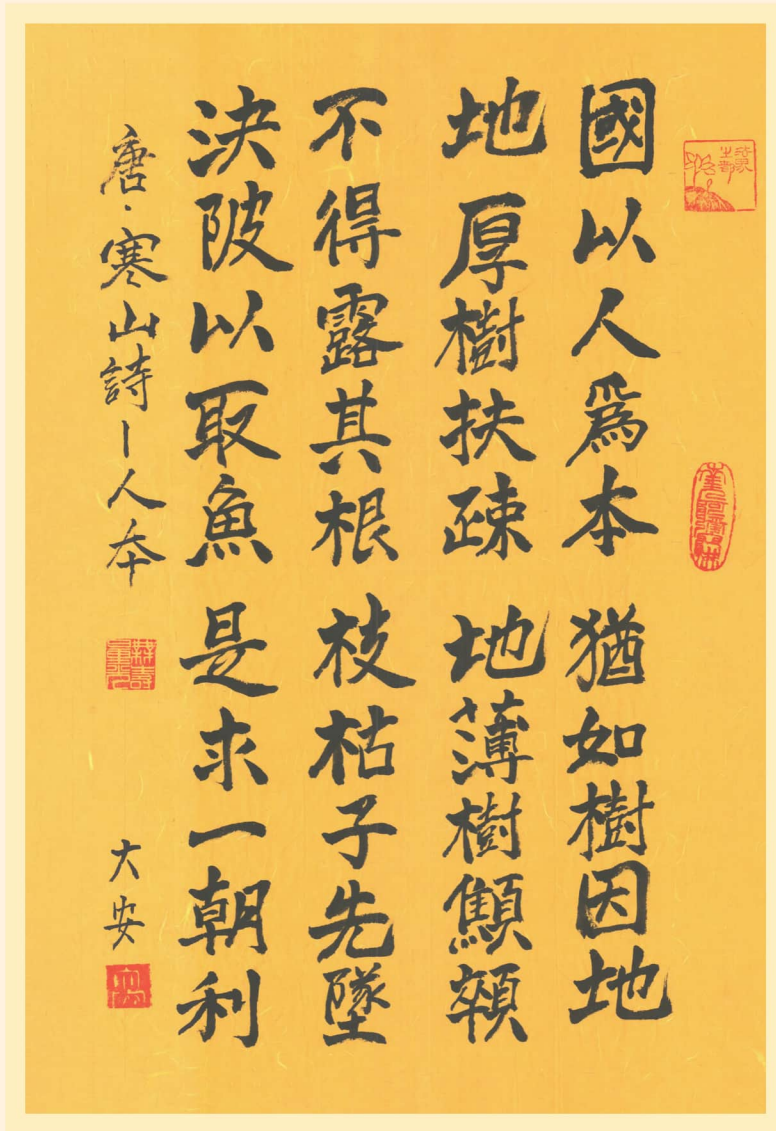 國以人爲本 猶如樹因地
地厚樹扶疎 地薄樹顦顇
不得露其根 枝枯子先墜
決陂以取魚 是求一朝利
唐、寒山詩—人夲 大安